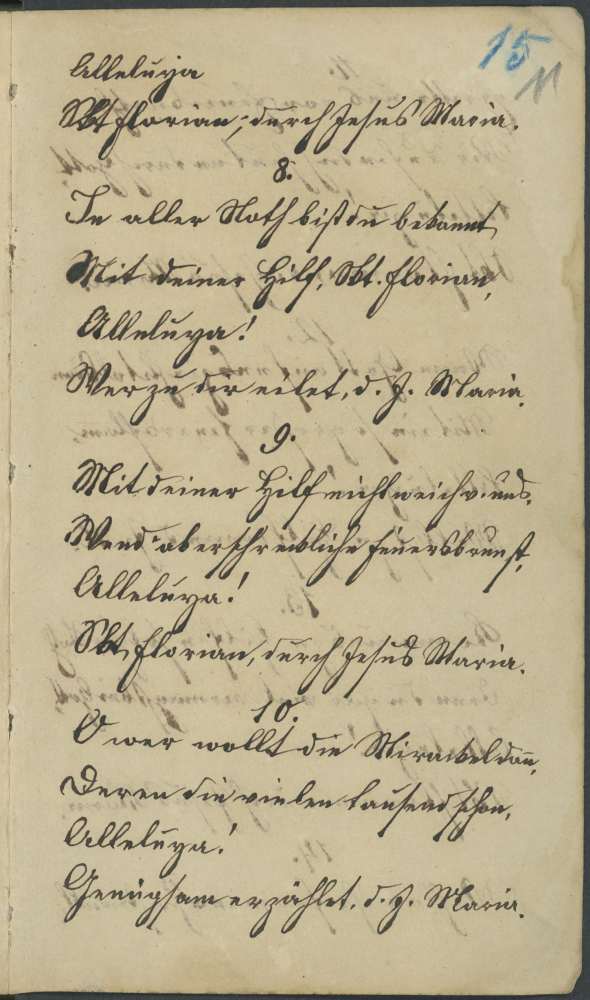 15
11
Alleluya
Skt Florian, durch Jesus Maria.
8.
In aller Noth bist du bekannt,
Mit deiner Hilf, Skt. Florian,
Alleluya!
Wer zu dir eilet, d. J. Maria.
9.
Mit deiner Hilf nicht weich v. uns,
Wend' ab erschreckliche Feuersbrunst,
Alleluya!
Skt. Florian, durch Jesus Maria.
10.
O wer wollt die Mirackel dan̅,
Deren die vielen tausend schon,
Alleluya!
Genügsam erzählet, d. J. Maria.